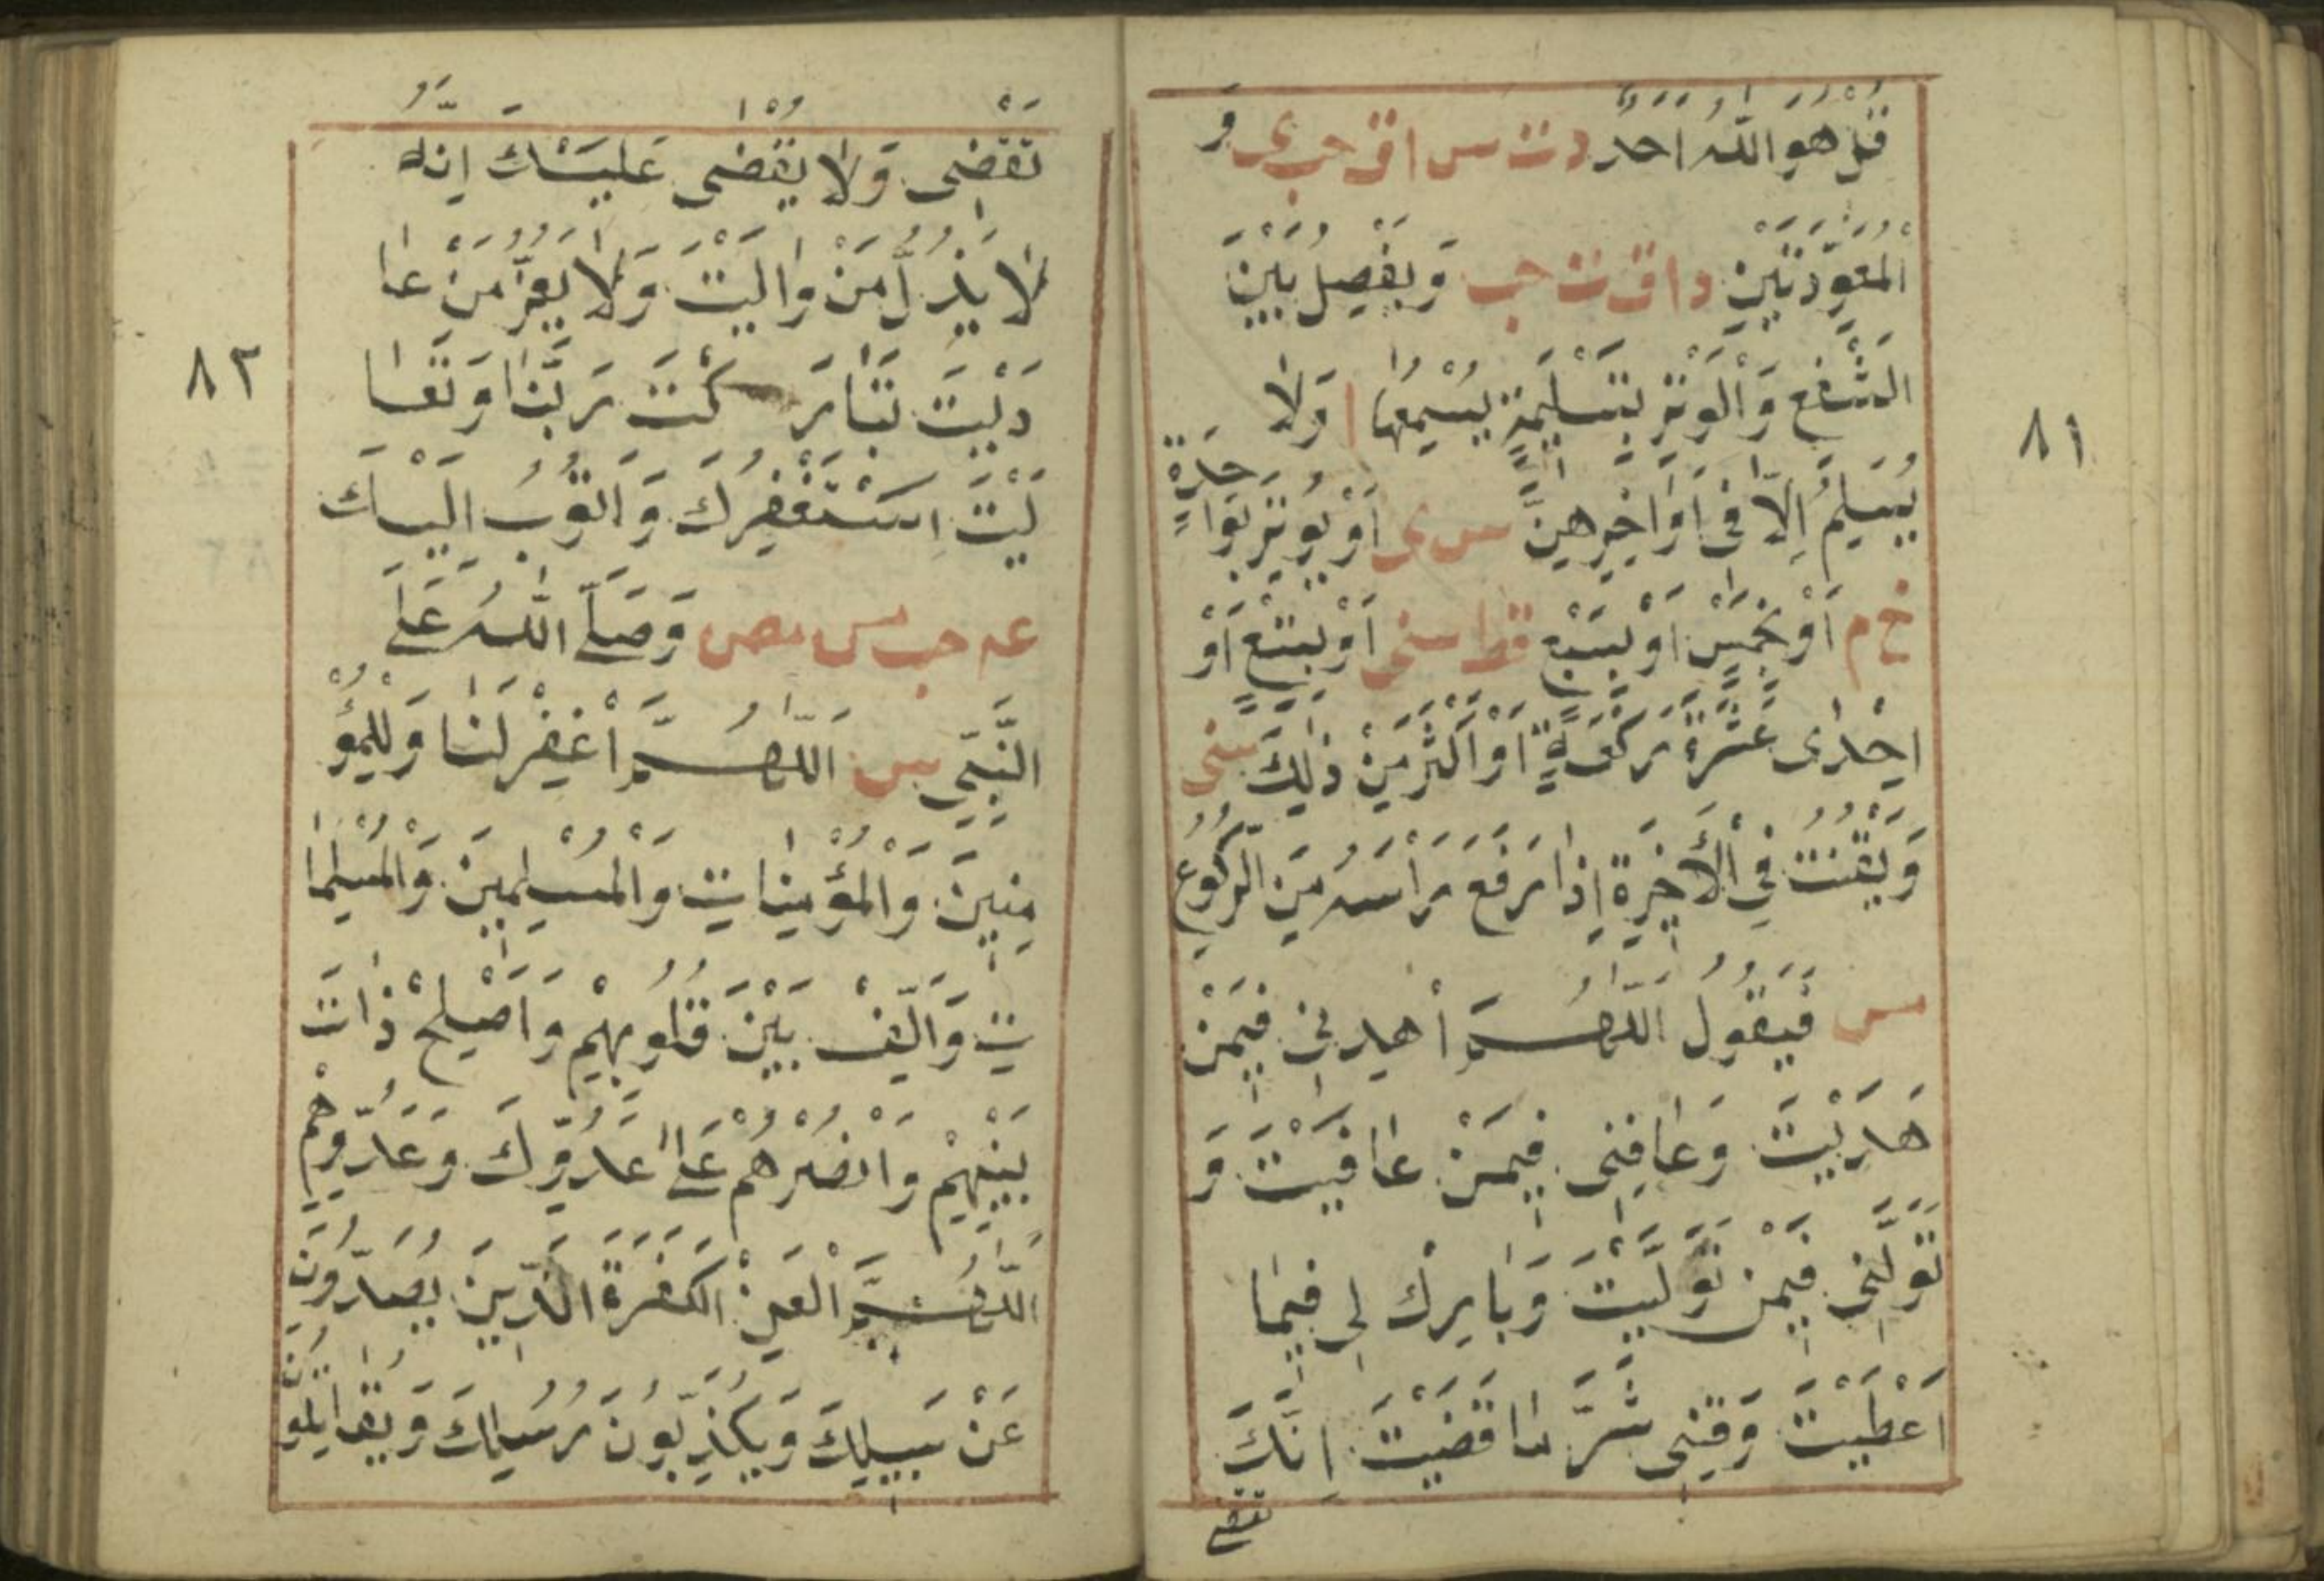 قُلْ هُوَ اللّٰهُ اَحَدٌ د ت س ا ق حب ى وَ
الْمُعَوِّذَتَيْنِ د ا ق ت حب وَيَفْصِلُ بَيْنَ
الشَّفْعِ وَالْوَتْرِ بِتَسْلِيمَةٍ يُسْمِعُهَا ا وَلَا
يُسَلِّمُ اِلَّا فِى اَوَاخِرِهِنَّ س ى اَوْ يُوتِرُ بِوَاحِدَةٍ
خ م اَوْ بِخَمْسٍ اَوْ بِسَبْعٍ قط سنى اَوْ بِتِسْعٍ اَوْ
اِحْدٰى عَشْرَةَ رَكْعَةً اَوْ اَكْثَرَ مِنْ ذٰلِكَ سنى
وَيَقْنُتُ فِى الْاَخِيرَةِ اِذَا رَفَعَ رَاْسَهُ مِنَ الرُّكُوعِ
مس فَيَقُولُ اَللّٰهُمَّ اهْدِنِى فِيمَنْ
هَدَيْتَ وَعَافِنِى فِيمَنْ عَافَيْتَ وَ
تَوَلَّنِى فِيمَنْ تَوَلَّيْتَ وَبَارِكْ لِى فِيمَا
اَعْطَيْتَ وَقِنِى شَرَّ مَا قَضَيْتَ اِنَّكَ
تقضى
٨١
تَقْضِى وَلَا يُقْضٰى عَلَيْكَ اِنَّهُ
لَا يَذِلُّ مَنْ وَالَيْتَ وَلَا يَعِزُّ مَنْ عَا
دَيْتَ تَبَارَكْتَ رَبَّنَا وَتَعَا
لَيْتَ اَسْتَغْفِرُكَ وَاَتُوبُ اِلَيْكَ
عه حب مس مص وَصَلَّى اللّٰهُ عَلَى
النَّبِىِّ س اَللّٰهُمَّ اغْفِرْ لَنَا وَلِلْمُؤْ
مِنِينَ وَالْمُؤْمِنَاتِ وَالْمُسْلِمِينَ وَالْمُسْلِمَا
تِ وَاَلِّفْ بَيْنَ قُلُوبِهِمْ وَاَصْلِحْ ذَاتَ
بَيْنِهِمْ وَانْصُرْهُمْ عَلٰى عَدُوِّكَ وَعَدُوِّهِمْ
اَللّٰهُمَّ الْعَنْ الْكَفَرَةَ الَّذِينَ يَصُدُّونَ
عَنْ سَبِيلِكَ وَيُكَذِّبُونَ رُسُلَكَ وَيُقَاتِلُونَ
٨٢